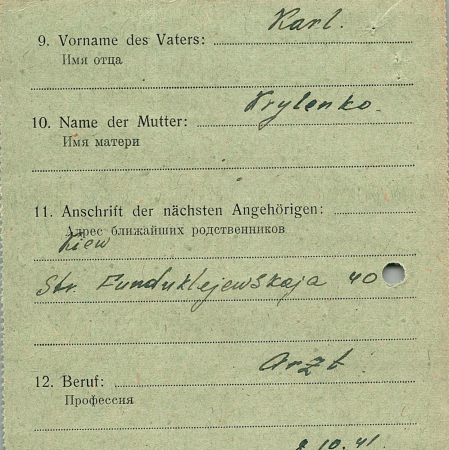 Karl.
9. Vorname des Vaters:
Имя отца
Krylenko.
10. Name der Mutter:
Имя матери
11. Anschrift der nächsten Angehörigen:
Адрес ближайших родственников
Kiew
Str. Funduklejewskaja 40
Arzt
12. Beruf:
Профессия
10. 41.